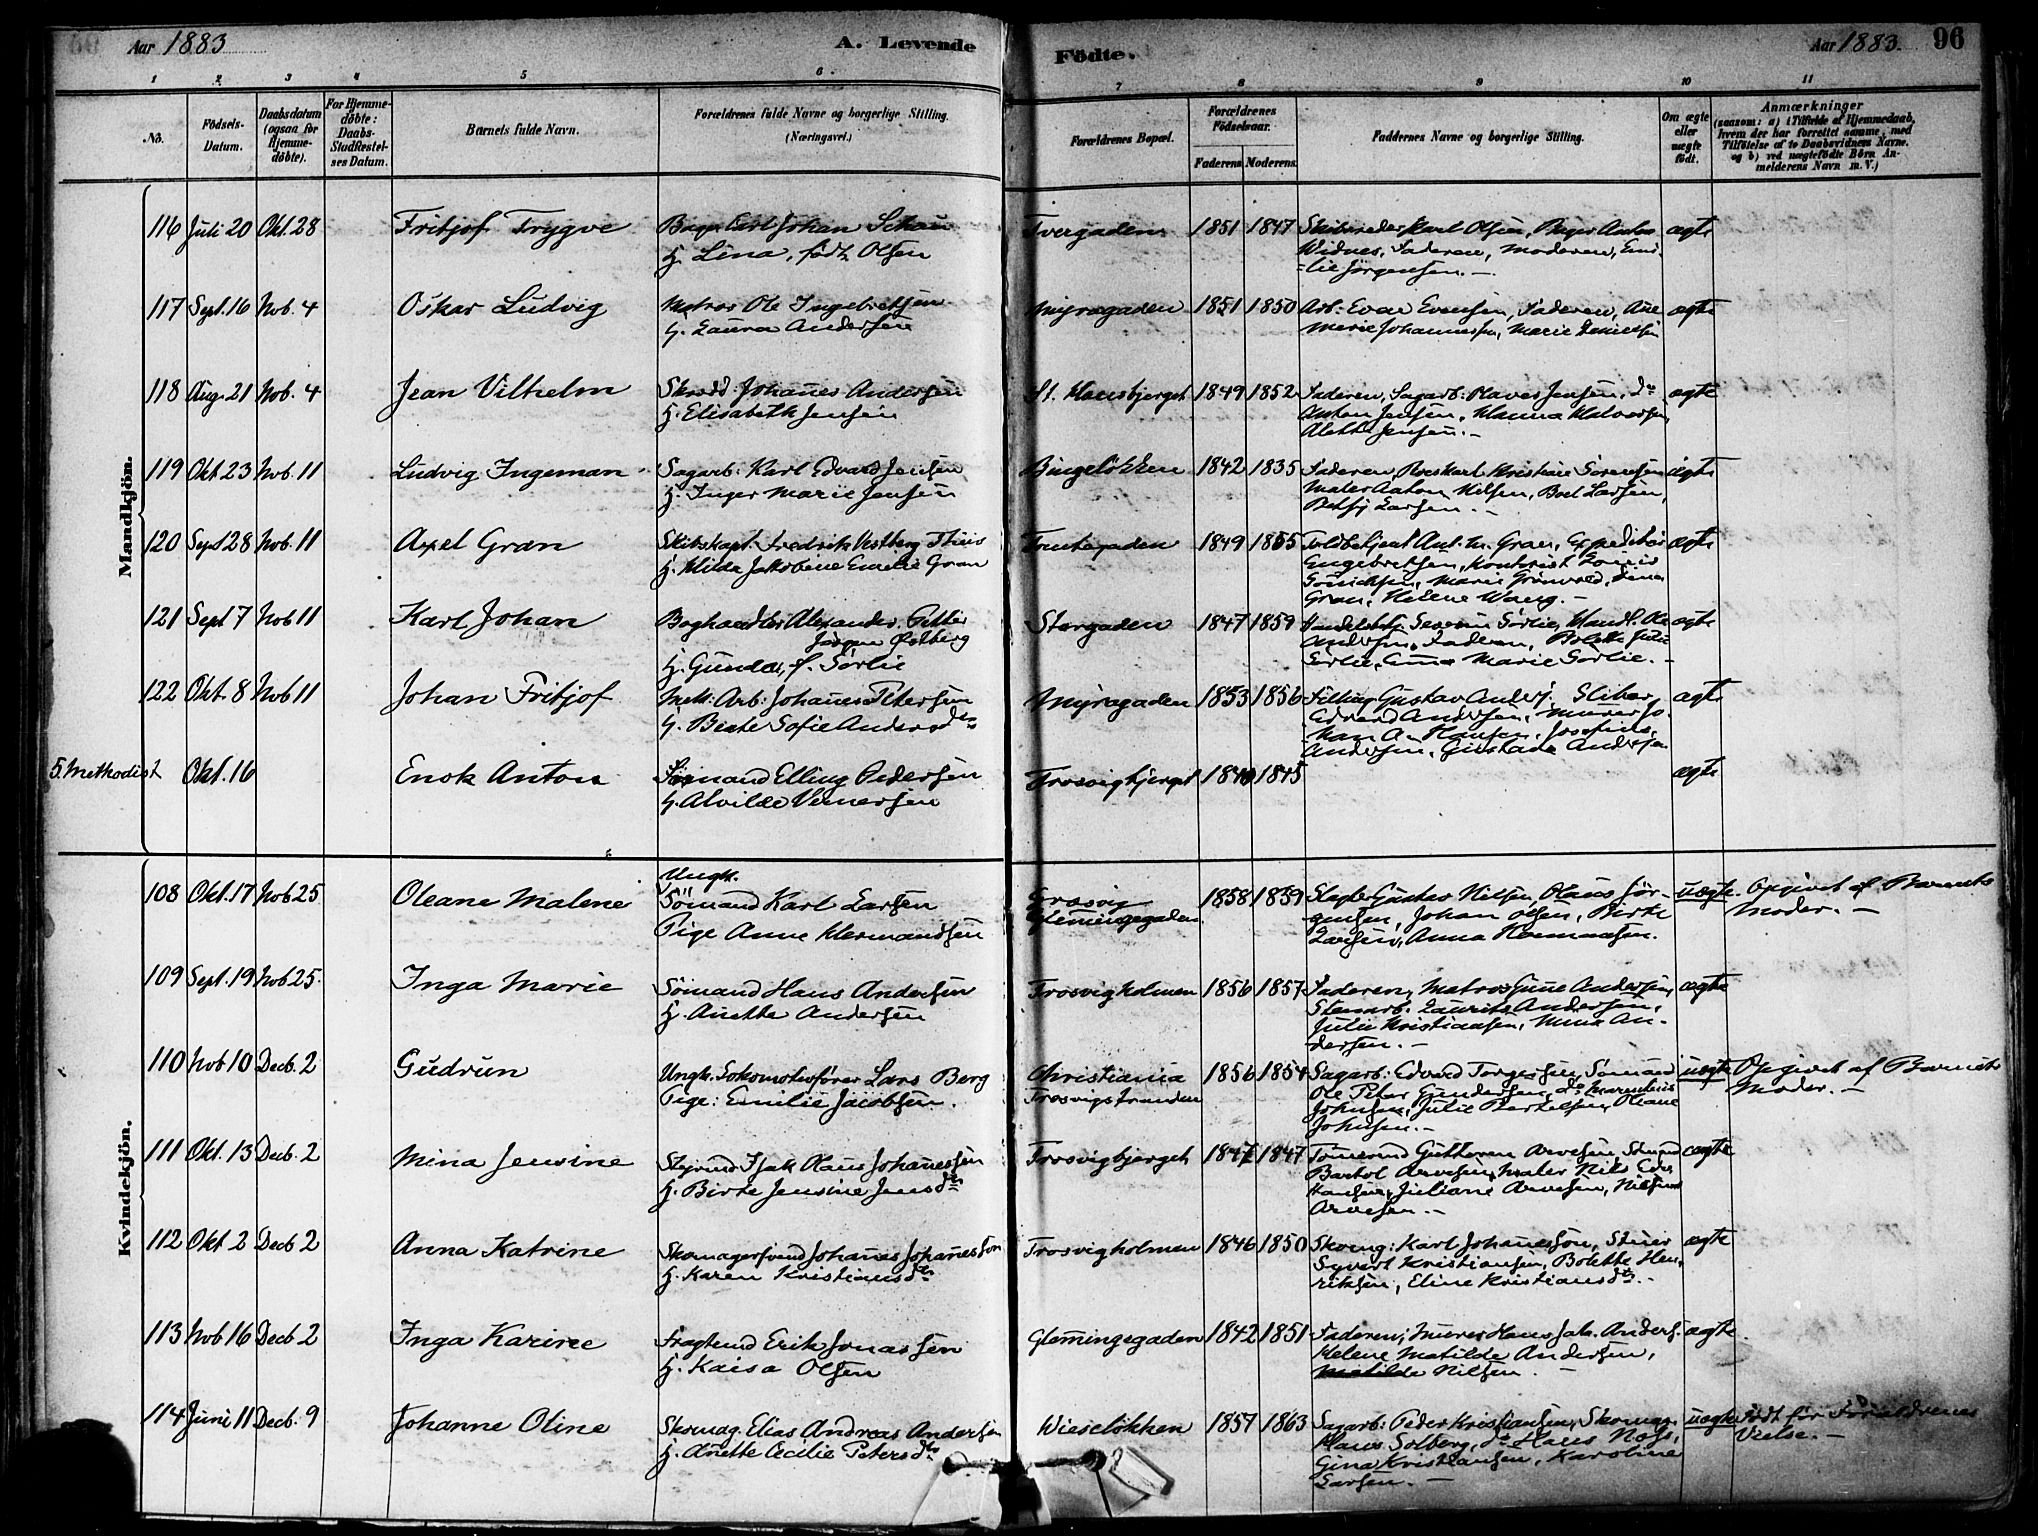 Aar 1883
A. Levende
Födte.
Aar 1883.
96
1 2 3 4 5 6 7 8 9 10 11
No.
Födsels-
Datum.
Daabsdatum
(ogsaa for
Hjemme-
döbte).
For Hjemme-
döbte:
Daabs-
Stadfæstel-
ses Datum.
Barnets fulde Navn.
Forældrenes fulde Navne og borgerlige Stilling.
(Næringsvei.)
Forældrenes Bopæl.
Forældrenes
Födselsaar.
Faderens Moderens
Faddernes Navne og borgerlige Stilling.
Om ægte
eller
uægte
födt.
Anmærkninger
(saasom: a) i Tilfælde af Hjemmedaab,
hvem der har forrettet samme, med
Tilföielse af to Daabsvidners Navne.
og b) ved uægtefödte Börn An-
melderens Navn m. V.)
Mandkjön.
116 Juli 20 Okt. 28 Fritjof Trygve Carl Johan Schau
H. Lina, födt Olsen
Tvergaden 1851 1847 Skibsreder Karl Olsen, Bager Anton
Widnes, Faderen, Moderen, Emi-
lie Jörgensen. —
ægte
117 Sept. 16 Nob. 4 Oskar Ludvig Matros Ole Ingebretsen
H. Laura Andersen
Myragaden 1851 1850 Arb: Evar Evensen, Faderen, Ane
Marie Johannesen, Marie
ægte
118 Aug. 21 Nob. 4 Jean Vilhelm Johanes Andersen
H. Elisabeth Jensen
St. Hansbjerget 1849 1852 Faderen, Sagarb: Olaves Jensen, do
Anton Jensen, Hanna Halvorsen,
Alette Jensen. —
ægte
119 Okt 23 Nob. 11 Ludvig Ingeman Sagarb: Karl Edvard Jensen
H. Inger Marie Jensen
Bingelökken 1842 1835 Faderen, Kristine Sörensen
Maler Anton Nilsen, Boel Larsen,
Betsy Larsen. —
ægte
120 Sept 28 Nob. 11 Axel Gran Skibskapt. Fredrik Thiis
H. Hilda Jakobine Emelie Gran
1849 1855 Toldbetjent Ant. M. Gran, Expeditör
Engebretsen, Kontorist
Marie Grönvold,
Gran, Helene Wang. —
ægte
121 Sept 7 Nob 11 Karl Johan Boghandler Alexander Petter
Jörgen Östberg
H. Gunda, f. Sörlie
Storgaden 1847 1859 Severin Sörlie, Handl. Ole
Andersen, Faderen, Bolette Julie
Sörlie, Marie Sörlie. —
ægte
122 Okt. 8 Nob 11 Johan Fritjof Mek: Arb: Johanes Petersen
H. Beate Sofie Andersdtr
Myragaden 1853 1856 Gustav Anders.
Edvard Andersen, Murer Jo-
han A. Hansen, Josefine
Andersen, Gustava Andersen
ægte
5. Methodist Okt. 16 Enok Anton Sömand Elling Pedersen
H. Alvilde
Trosvigbjerget 1845 ægte
Kvindekjön.
108 Okt. 17 Nob 25 Oleane Malene Ungk.
Sömand Karl Larsen
Pige Anne Hermandsen
Græsvig
Glemingegaden.
1858 1859 Gustav Nilsen, Olaus Jör-
gensen, Johan Olsen, Berte
Larsen, Anna
uægte Opgivet af Barnets
Moder. —
109 Sept. 19 Nob 25. Inga Marie Sömand Hans Andersen
H. Anette Andersen
Trosvigholmen 1856 1857 Faderen, Matros Andersen,
Stenarb. Laurits Andersen,
Julie Kristiansen, Mina An-
dersen. —
ægte
110 Nob 10 Decb. 2 Gudrun Ungk. Lokomotivförer Lars Berg
Pige: Emilie Jacobsen.
Christiania
Trosvigstranden
1856 1854 Sagarb: Edvard Torgersen, Sömand
Ole Peter Gundersen, do
Johnsen, Julie Bertelsen, Oliane
Johnsen. —
uægte Opgivet af Barnets
Moder. —
111 Okt. 13 Decb. 2 Mina Jensine Styrmd Isak Olaus Johanessen
H. Birte Jensine Jensdtr
Trosvigbjerget 1847 1847 Tömermd Guttorm Arvesen, Sömand
Bartol Arvesen, Maler Nils
Hansen, Juliane Arvesen,
Arvesen. —
ægte
112 Okt 2 Decb 2 Anna Katrine Skomagersvend Johanes Johanesson
H. Karen Kristiansdtr
Trosvigholmen 1846 1850 Skomg: Karl Johanesson,
Syvert Kristiansen, Bolette Hen-
riksen, Eline Kristiansdtr. —
ægte
113 Nob 16 Decb 2 Inga Karine Fragtmd Erik Jonassen
H. Kaisa Olsen
Glemingegaden 1842 1851 Faderen, Murer Hans Jak. Anders.
Helene Matilde Andersen,
Matilde Nilsen. —
ægte
114 Juni 11 Decb. 9 Johanne Oline Skomag. Elias Andreas Andersen
H. Anette Cecilie Petersdtr
Wieselökken 1857 1863 Sagarb: Peder Kristiansen, Skomag.
Hans Solberg, do Hans Næss,
Gina Kristiansen, Karoline
Larsen. —
uægte Födt för Forældrenes
Vielse. —